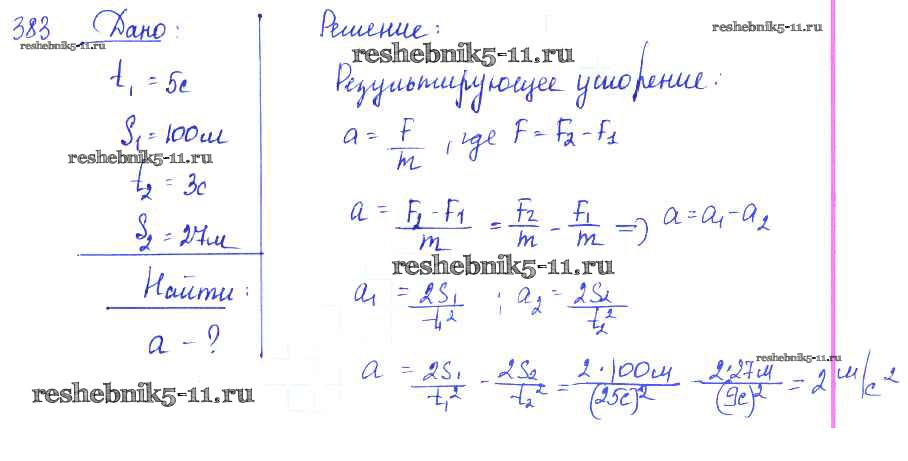 383 Дано:
reshebnik5-11.ru
t₁ = 5с
S₁ = 100м
reshebnik5-11.ru
t₂ = 3с
S₂ = 27м
Найти:
a - ?
reshebnik5-11.ru
Решение:
reshebnik5-11.ru
reshebnik5-11.ru
Результирующее ускорение:
a = F/m, где F = F₂ - F₁
a = (F₂ - F₁)/m = F₂/m - F₁/m => a = a₁ - a₂
reshebnik5-11.ru
a₁ = 2S₁/t₁² ; a₂ = 2S₂/t₂²
reshebnik5-11.ru
a = 2S₁/t₁² - 2S₂/t₂² = 2·100м/(25с)² - 2·27м/(9с)² = 2 м/с²